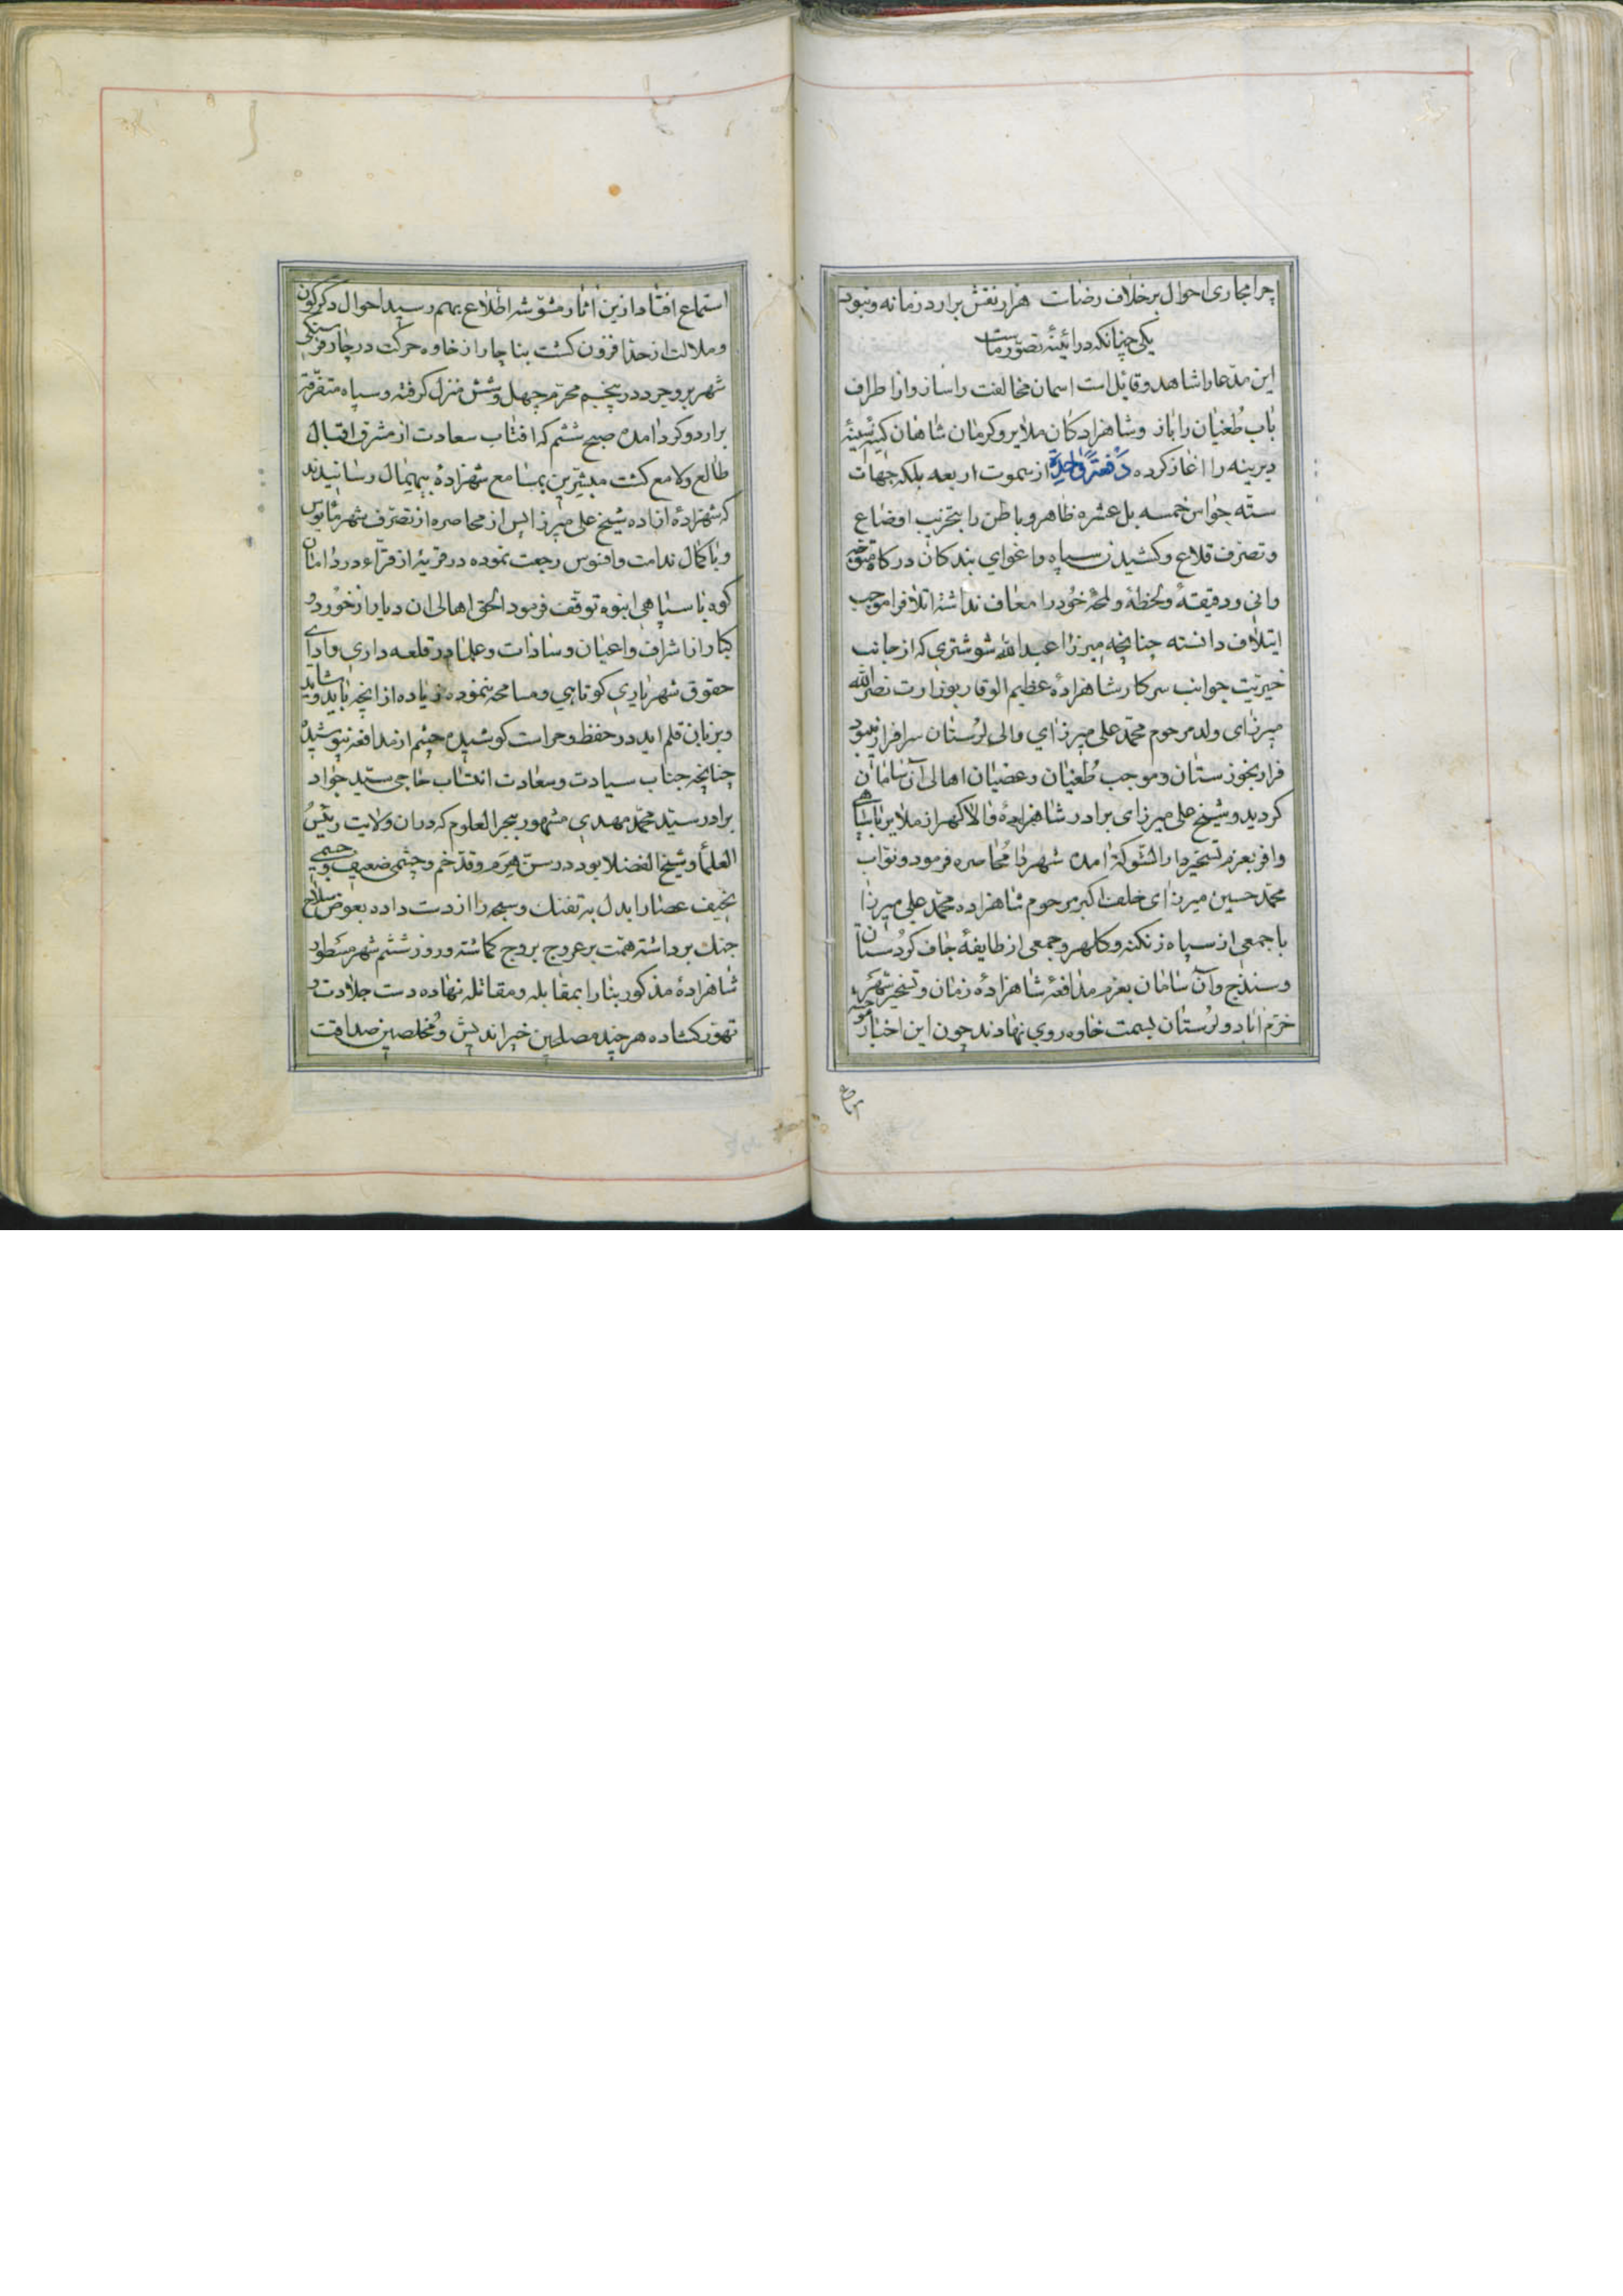 چرا مجاری احوال برخلاف رضاست هزار نقش برارد زمانه و نبود
یکی چنانکه در ائینهٔ تصوّر ماست
این مدّعا را شاهد و قائل است اسمان مخالفت را ساز و از اطراف
باب طُغیان را باز و شاهزادکان ملایر و کرمان شاهان کینهٔ
دیرینه را اغاز کرده دَفعَةً واحِدَةً از سموت اربعه بلکه جهات
ستّه حواس خمسه بل عشره ظاهر و باطن را بتخریب اوضاع
و تصرّف قلاع و کشیدن سپاه و اغوای بندکان درکاه
وانی و دقیقهٔ و لحظهٔ و لمحهٔ خود را معاف نداشته اتلافرا موجب
ایتلاف دانسته چنانچه میرزا عبدالله شوشتری که از جانب
خیریّت جوانب سرکار شاهزادهٔ عظیم الوقار بوزارت نصرالله
میرزای ولد مرحوم محمّد علی میرزای والی لُرستان سرافراز بود
فرار بخوزستان و موجب طُغیان و عصیان اهالی آن سامان
کردید و شیخ علی میرزای برادر شاهزادهٔ والاکهر از ملایر با سپاهی
وافر بعزم تسخیر دار الشوکة امده شهر را مُحاصره فرمود و نوّاب
محمّد حسین میرزای خلف اکبر مرحوم شاهزاده محمّد علی میرزا
با جمعی از سپاه زنکنه و کلهر و جمعی از طایفهٔ جاف کردُستان
و سنندج و آن سامان بعزم مدافعهٔ شاهزادهٔ زمان و تسخیر شهر
خرّم اباد و لُرستان بسمت خاوه روی نهادند چون این اخبار موحشه
استماع افتاد از ین اثار مشوّشه اطّلاع بهم رسید احوال دکرکون
و ملالت از حد افزون کشت بناچار از خاوه حرکت در چار فرسنکی
شهر بروجرد در پنجم محرّم چهل و شش منزل کرفته و سپاه متفرّقه
براردو کرد امده صبح ششم که افتاب سعادت از مشرق اقبال
طالع و لامع کشت مبشّرین بمسامع شهزادهٔ بیهمال رسانیدند
که شهزادهٔ ازاده شیخ علی میرزا پس از محاصره از تصرّف شهر مأیوس
و با کمال ندامت و افسوس رجعت نموده در قریهٔ از قراء در دامان
کوه با سپاهی انبوه توقّف فرمود الحق اهالی ان دیار از خورد و
کبار از اشراف و اعیان و سادات و علما در قلعه داری و ادای
حقوق شهریاری کوتاهی و مسامحه ننموده زیاده از انچه باید و شاید
و بزبان قلم اید در حفظ و حراست کوشیده چشم از مدافعه نپوشیدند
چنانچه جناب سیادت و سعادت انتساب حاجی سیّد جواد
برادر سیّد محمّد مهدی مشهور ببحر العلوم که در ان ولایت رئیسُ
العلماء و شیخ الفضلا بود در سنّ هَرَم و قدّ خم و چشمی ضعیف و جسمی
نحیف عصا را بدل به تفنک و سبحه را از دست داده بعوض سلاح
جنک برداشته همّت بر عروج بروج کماشته و روز ششم شهر مسطور
شاهزادهٔ مذکور بنا را بمقابله و مقاتله نهاده دست جلادت و
تهوّر کشاده هر چند مصلحین خیر اندیش و مُخلصین صداقت